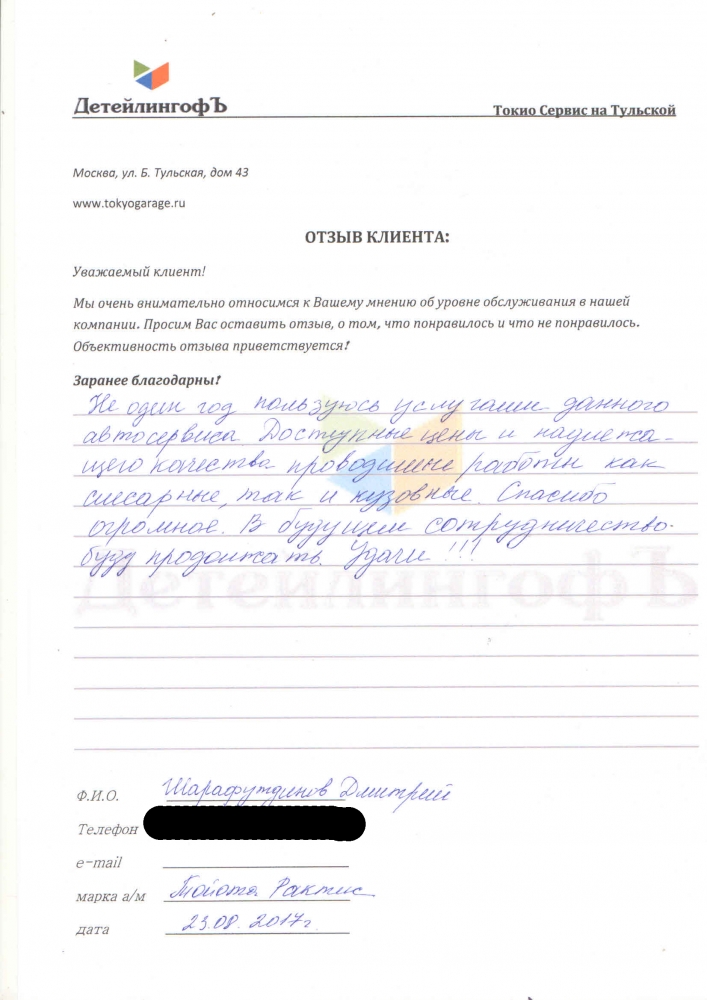 ДетейлингофЪ
Токио Сервис на Тульской
Москва, ул. Б. Тульская, дом 43
www.tokyogarage.ru
ОТЗЫВ КЛИЕНТА:
Уважаемый клиент!
Мы очень внимательно относимся к Вашему мнению об уровне обслуживания в нашей
компании. Просим Вас оставить отзыв, о том, что понравилось и что не понравилось.
Объективность отзыва приветствуется!
Заранее благодарны!
Не один год пользуюсь услугами данного
автосервиса. Доступные цены и надлежа-
щего качества проводимые работы как
слесарные, так и кузовные. Спасибо
огромное. В будущем сотрудничество
буду продолжать. Удачи!!!
ДетейлингофЪ
Ф.И.О. Шарафутдинов Дмитрий
Телефон
e-mail
марка а/м Тойота Рактис
дата 23.08.2017г.